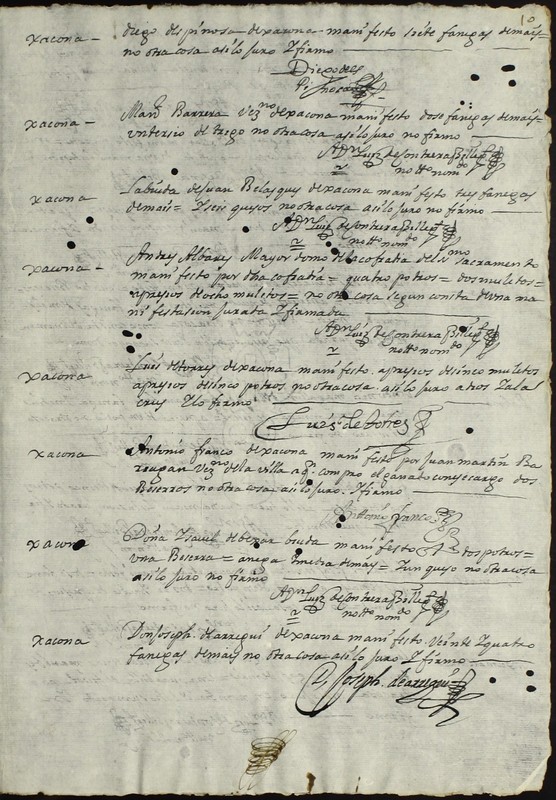 10
xacona - diego despinosa dexacona manifesto siete fanegas demais=
no otra cosa asilo juro Yfirmo
Diego des
Pinosa
xacona - Marn Barrera Vezno dexacona manifesto dose fanegas demais=
untersio de trigo no otra cosa asilo juro no firmo
Luis deContrera
notto nomdo
xacona Labiuda deJuan Belasques dexacona manifesto tres fanegas
demais= Yseis quesos no otra cosa asilo juro no firmo
Luis deContrera
notto nomdo
xacona - Andres Albares Mayordomo dela cofradia del smo sacramento
manifesto por dha cofradia= quatro potros= dos muletos=
apresios de ocho muletos= no otra cosa segun consta de una ma
nifestasion jurada Yfirmada
Luis deContrera
notto nomdo
xacona Luis detorres dexacona manifesto apresios desinco muletos
apresios desinco potros no otra cosa asilo juro a Dios Yala
crus Ylo firmo
Luis de torres
xacona Antonio franco dexacona manifesto por Juan martin Ba
rragan Vezno dela villa aqn compro el ganado consecargo dos
Beserros no otra cosa asilo juro Yfirmo
Anttonio franco
xacona Doña Ysauel debexar biuda manifesto dos potros=
una Beserra= anega Ymedia demais= Yun queso no otra cosa
asilo juro no firmo
Luis deContrera
notto nomdo
xacona DonJoseph dearregui dexacona manifesto Veinte Yquatro
fanegas demais no otra cosa asilo juro Yfirmo
Joseph dearregui